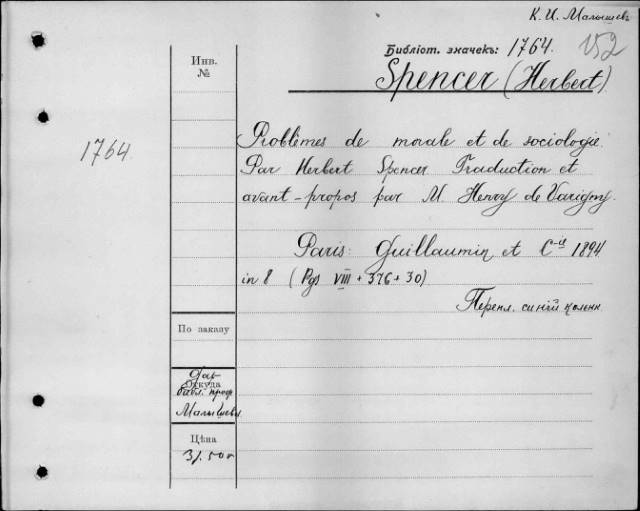 К. И. Малышевъ
Библіот. значекъ: 1764. 152
Spencer (Herbert)
Инв.
№
1764
Problèmes de morale et de sociologie.
Par Herbert Spencer Traduction et
avant-propos par M. Henry de Varigny.
Paris: Guillaumin et C-ie 1894
in 8 (Pgs VIII + 376 + 30)
Перепл. синій коленк
По заказу
Дар
Откуда
библ. проф
Малышева
Цѣна